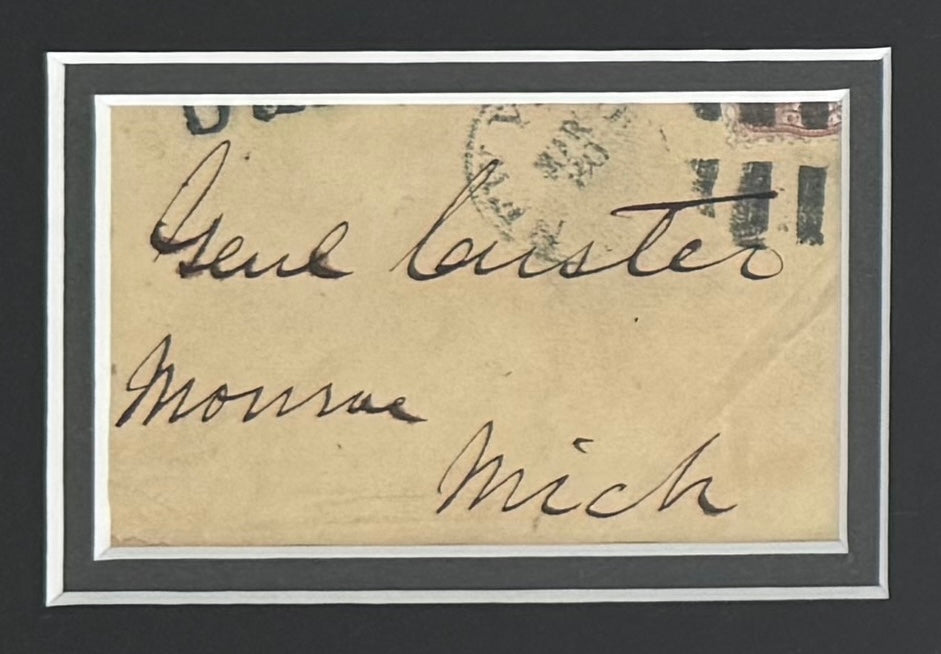 APR
20
Genl Custer
Monroe
Mich